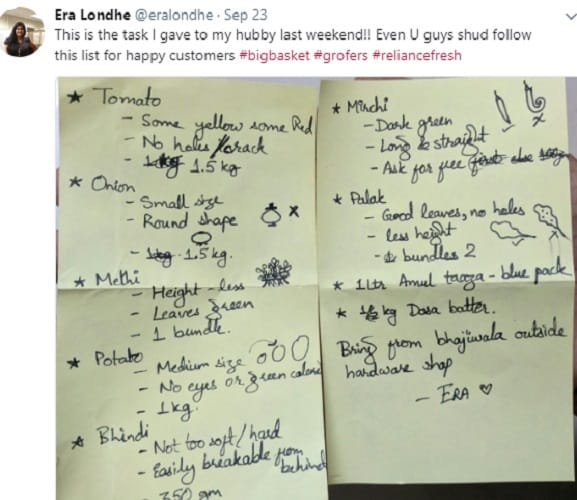 Era Londhe @eralondhe · Sep 23
This is the task I gave to my hubby last weekend!! Even U guys shud follow
this list for happy customers #bigbasket #grofers #reliancefresh
★ Tomato
- Some yellow some Red
- No holes/crack
- 1kg 1.5 kg
★ Onion
- Small size
- Round shape
x
- 1kg 1.5 kg.
★ Methi
- Height - less
- Leaves green
- 1 bundle.
★ Potato
- Medium size
- No eyes or green colored
- 1kg.
★ Bhindi
- Not too soft/hard
- Easily breakable from
behind
- 250 gm
★ Mirchi
- Dark green
- Long & straight
- Ask for free first else
★ Palak
- Good leaves, no holes
- less height
- bundles 2
★ 1 Ltr Amul taaza - blue pack
★ kg Dosa batter.
Bring from bhajiwala outside
hardware shop
- ERA ♡